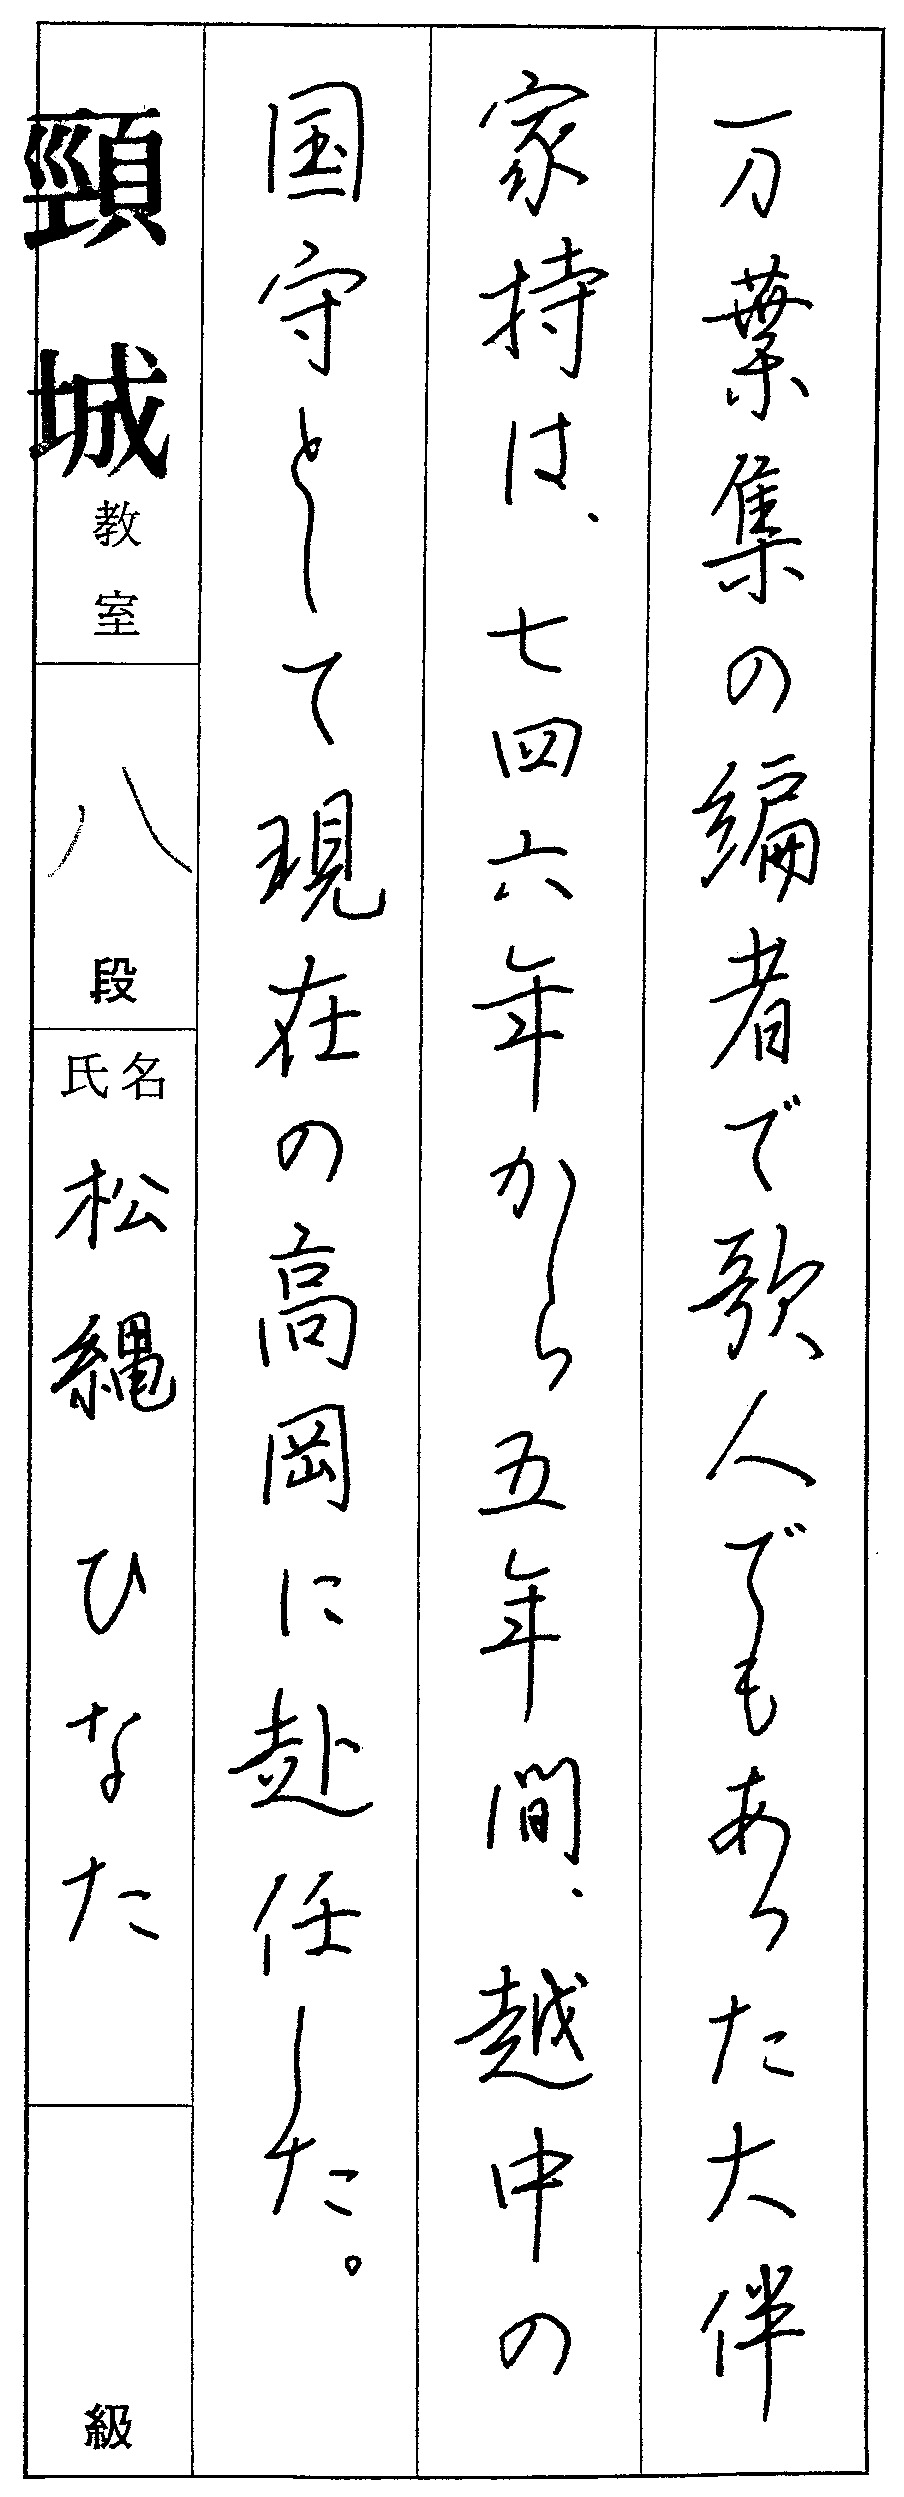 万葉集の編者で歌人でもあった大伴
家持は、七四六年から五年間、越中の
国守として現在の高岡に赴任した。
頸城教室
八段
氏名
松縄ひなた
級